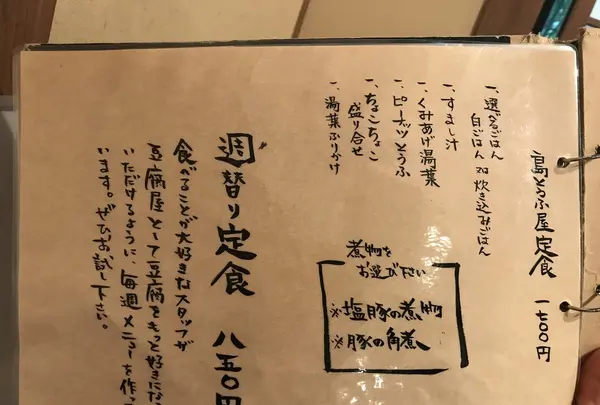 島とうふ屋定食 一七〇〇円
一、選べるごはん
白ごはん or 炊き込みごはん
一、すまし汁
一、くみあげ湯葉
一、ピーナッツとうふ
一、ちょこちょこ
盛り合せ
一、湯葉ふりかけ
煮物を
お選び下さい
※塩豚の煮物
※豚の角煮
週替り定食 八五〇円
食べることが大好きなスタッフが
豆腐屋として豆腐をもっと好きになっ
いただけるように、毎週メニューを作っ
います。ぜひお試し下さい。